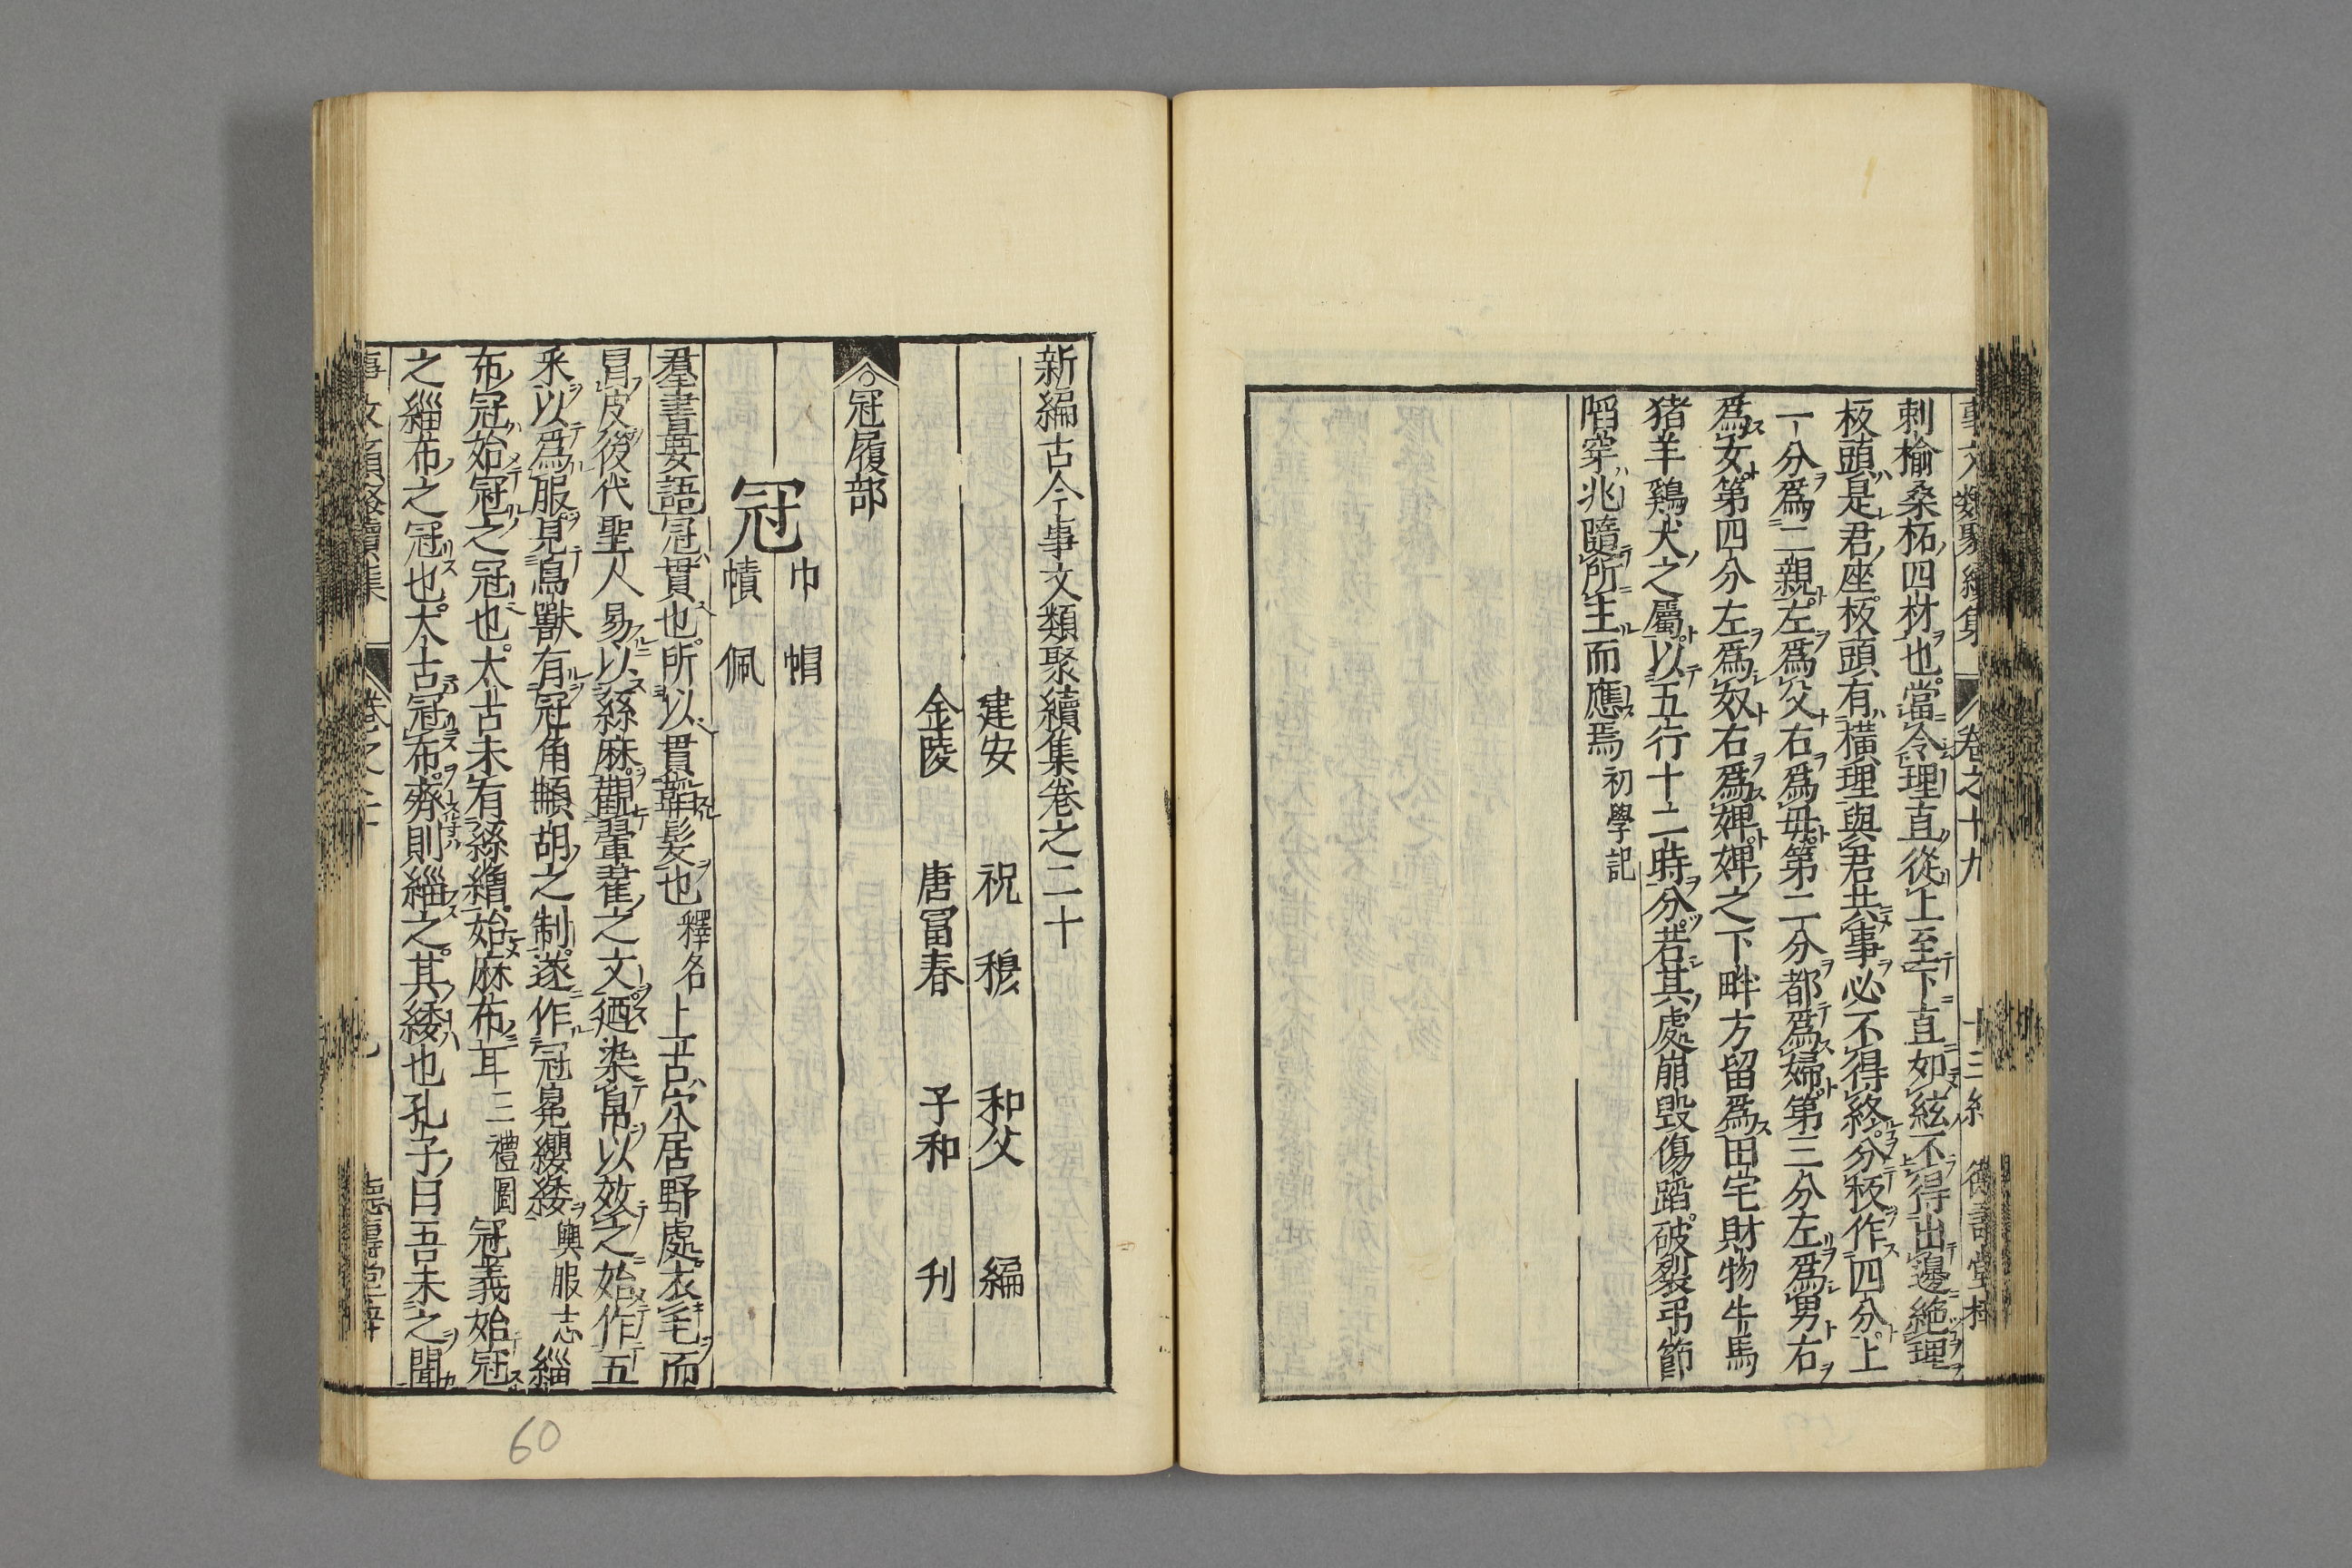 刺榆桑柘四材也當令理直從上至下直如絃不得出邊絶理
板頭是君座板頭有橫理與君共事必不得終分板作四分上
一分爲二親左爲父右爲母第二分都爲婦第三分左爲男右
爲女第四分左爲奴右爲婢婢之下畔方留爲田宅財物牛馬
猪羊鷄犬之屬以五行十二時分若其處崩毀傷蹈破裂弔節
陷穿兆隨所主而應焉初學記
新編古今事文類聚續集卷之二十
建安 祝穆 和父 編
金陵 唐冨春 子和 刋
冠履部
冠 巾 帽
幘 佩
羣書要語冠貫也所以貫韜髪也釋名上古穴居野處衣毛而
冒皮後代聖人易以絲麻觀翬翟之文廼染帛以效之始作五
采以爲服見鳥獸有冠角䫇胡之制遂作冠冕纓緌輿服志緇
布冠始冠之冠也太古未有絲繒始麻布耳三禮圖冠義始冠
之緇布之冠也太古冠布齊則緇之其緌也孔子曰吾未之聞
60